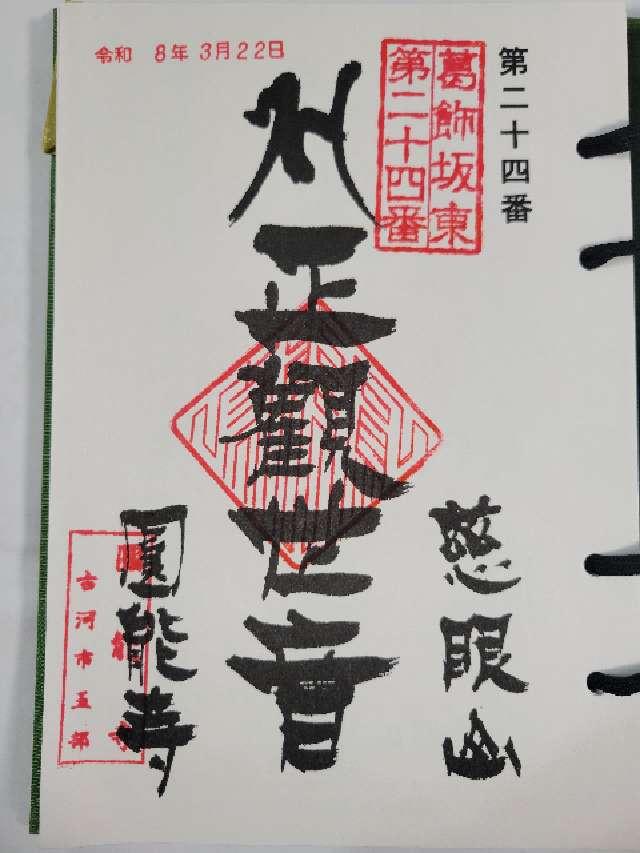 第二十四番
葛飾坂東
第二十四番
令和 8年 3月22日
正觀世音
慈眼
圓能寺
古河市五部